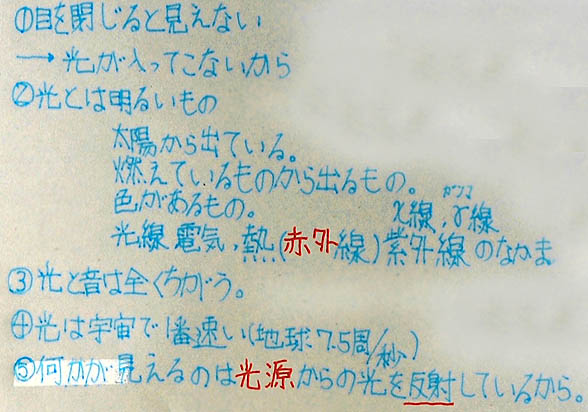 ①目を閉じると見えない
→光が入ってこないから
②光とは明るいもの
太陽から出ている。
燃えているものから出るもの。
色があるもの。
ガンマ
χ線,γ線
光線 電気,熱(赤外線)紫外線 のなかま
③光と音は全くちがう。
④光は宇宙で1番速い(地球7.5周/秒)
⑤何かが見えるのは光源からの光を反射しているから。